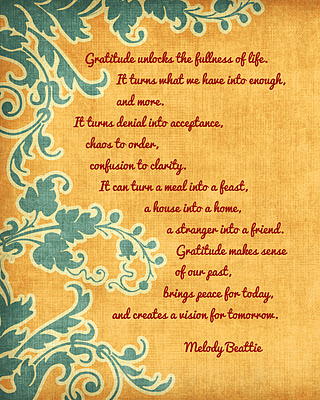 Gratitude unlocks the fullness of life.
It turns what we have into enough,
and more.
It turns denial into acceptance,
chaos to order,
confusion to clarity.
It can turn a meal into a feast,
a house into a home,
a stranger into a friend.
Gratitude makes sense
of our past,
brings peace for today,
and creates a vision for tomorrow.
Melody Beattie